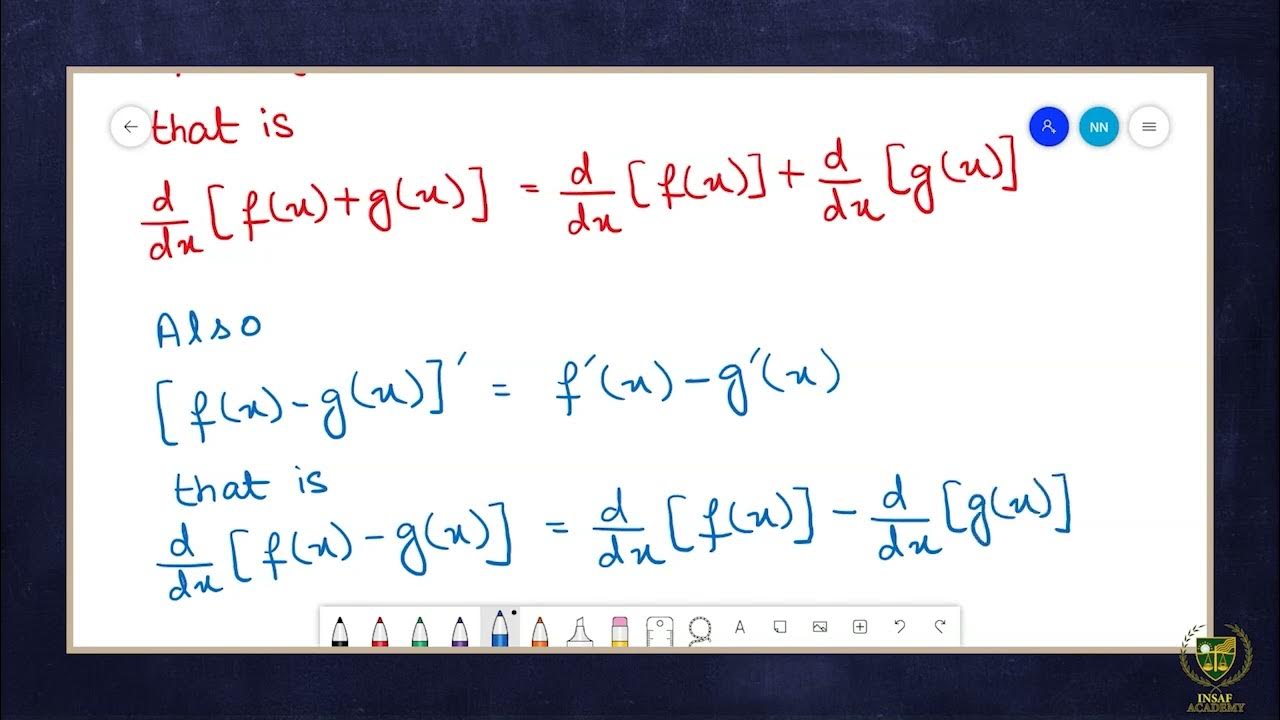 that is
d/dx [f(x)+g(x)] = d/dx [f(x)] + d/dx [g(x)]
Also
[f(x)-g(x)]′ = f′(x)-g′(x)
that is
d/dx [f(x)-g(x)] = d/dx [f(x)] - d/dx [g(x)]
NN
A
INSAF
ACADEMY